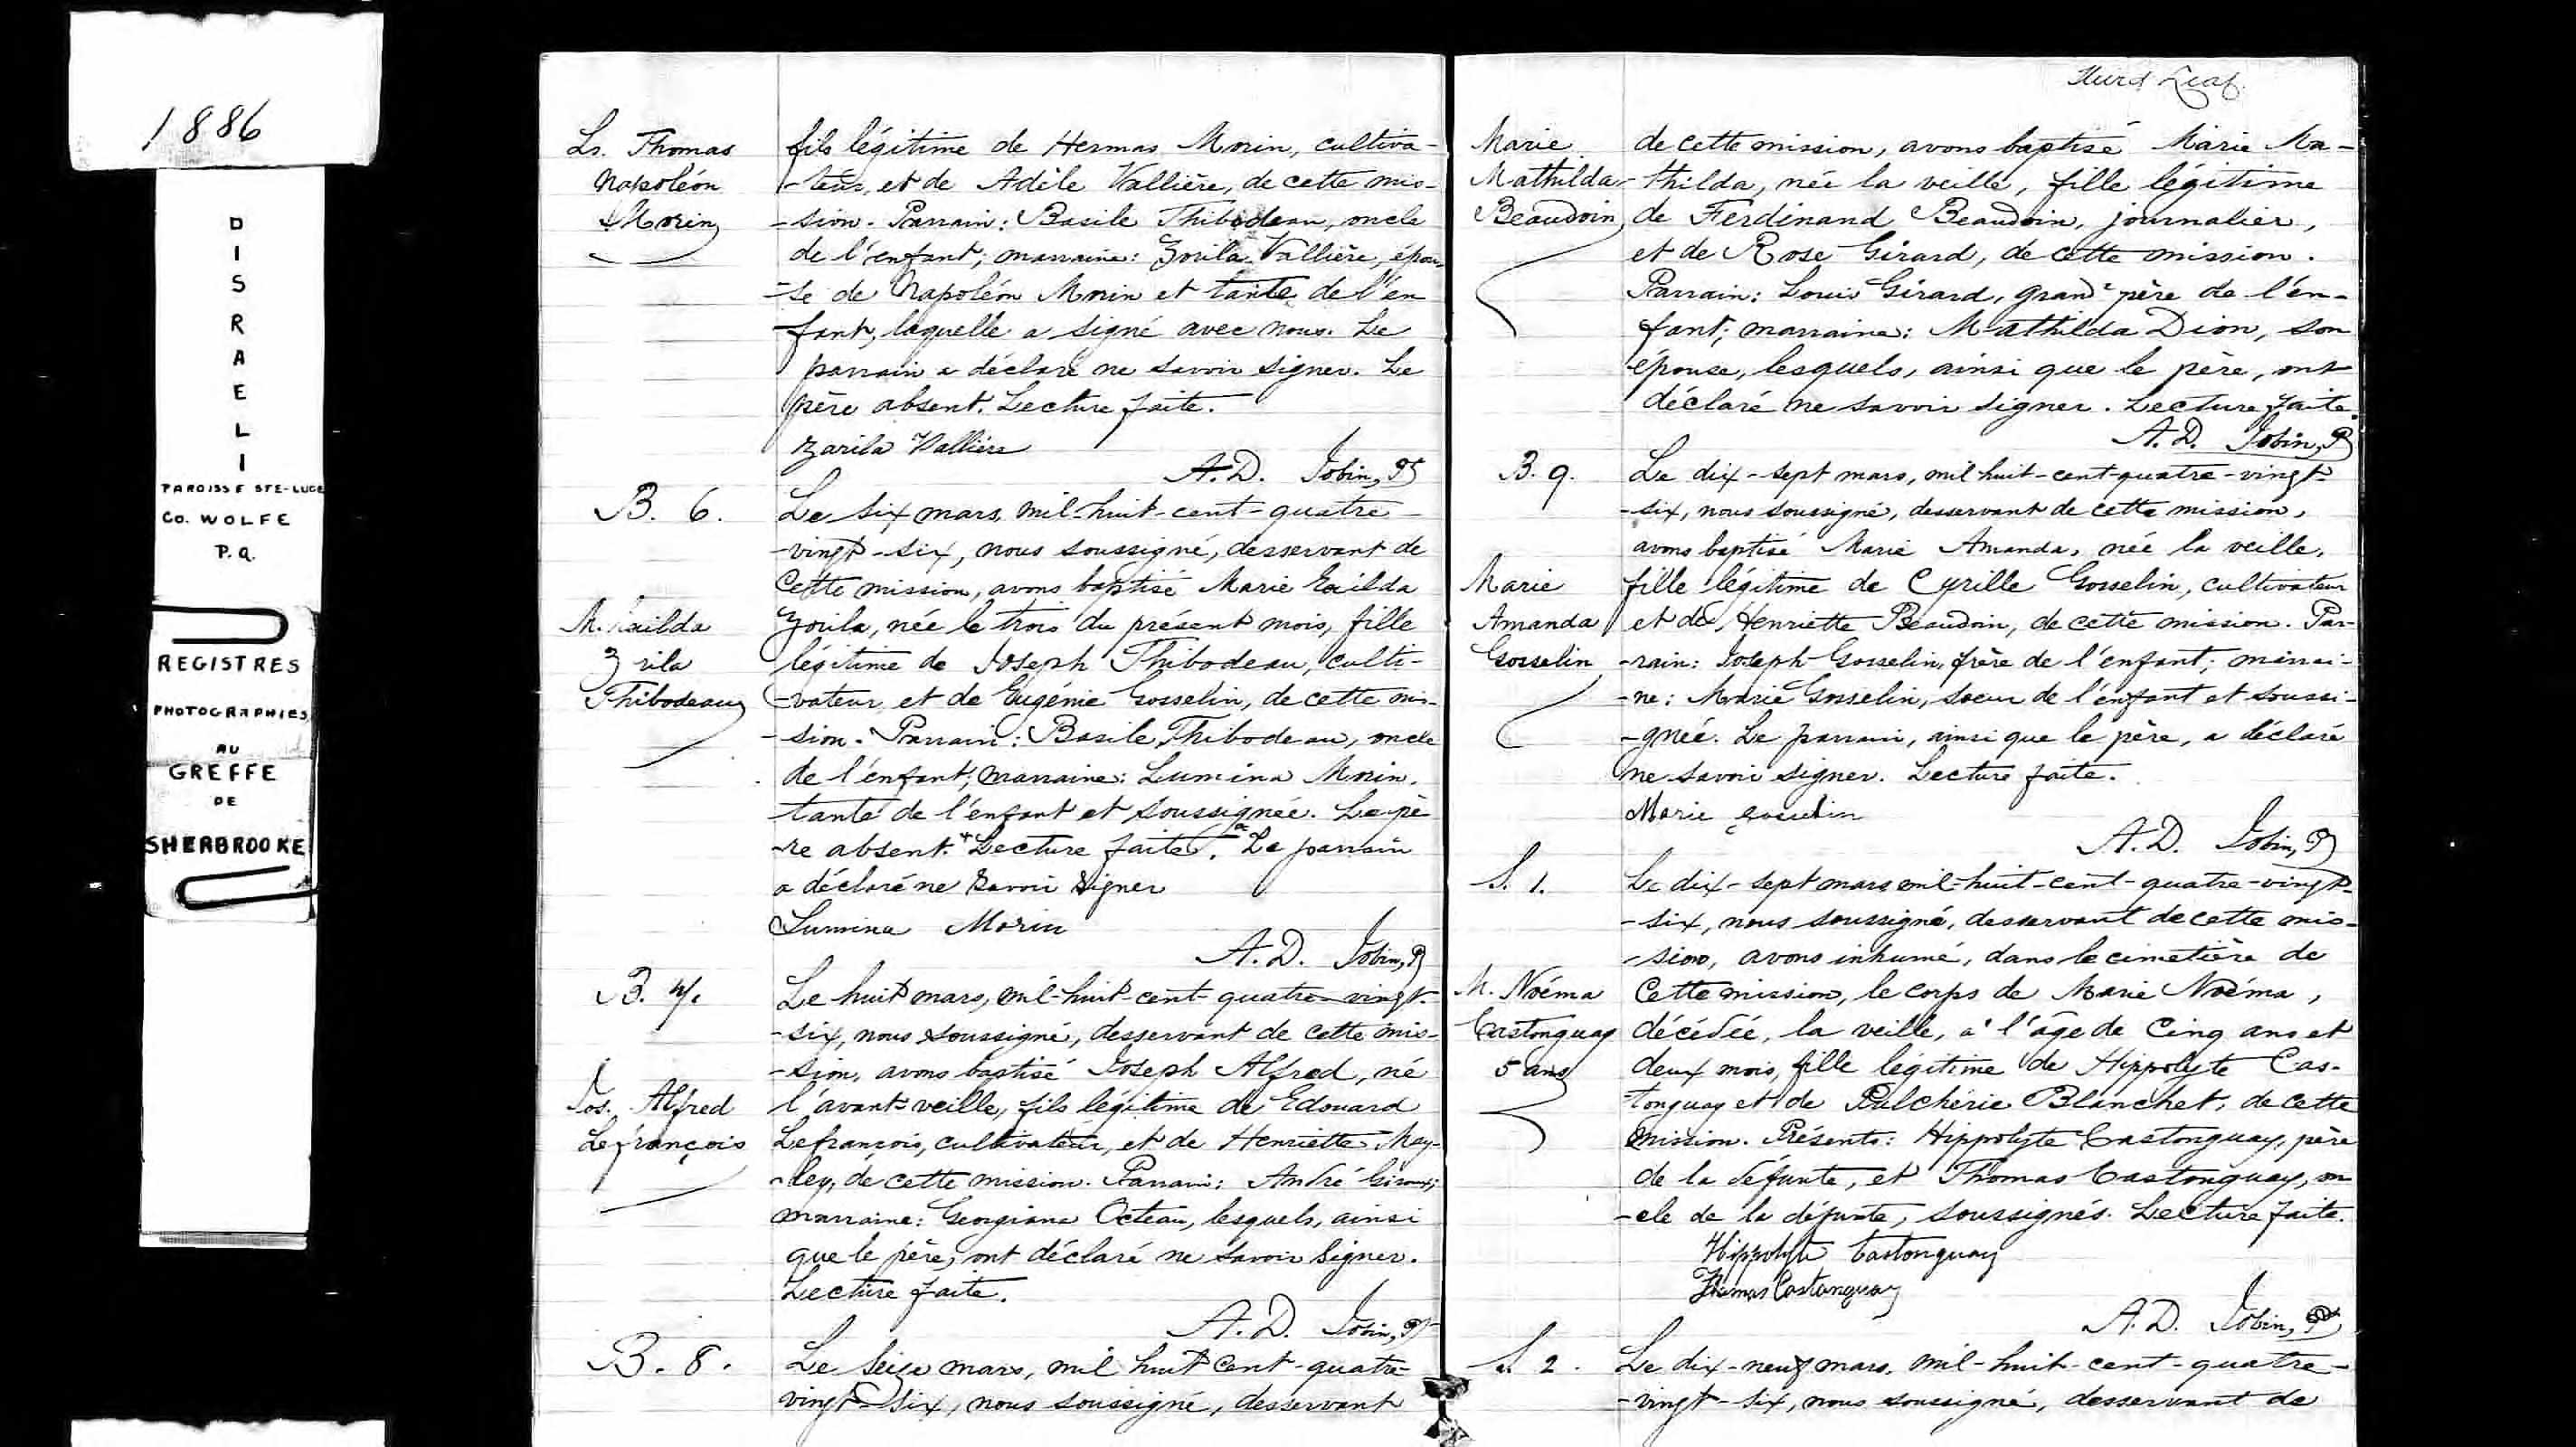 1886
DISRAELI
PAROISSE STE-LUCE
CO. WOLFE
P.Q.
REGISTRES
PHOTOGRAPHIES
AU
GREFFE
DE
SHERBROOKE
Ls. Thomas
Napoléon
Morin
fils légitime de Hermas Morin, cultiva-
-teur, et de Adèle Vallière, de cette mis-
-sion. Parrain: Basile Thibodeau, oncle
de l'enfant; marraine: Zorila Vallière, épou-
-se de Napoléon Morin et tante de l'en
-fant, laquelle a signé avec nous. Le
parrain a déclaré ne savoir signer. Le
père absent. Lecture faite.
Zarila Vallière
A.D. Jobin, P
B. 6.
Le six mars, mil-huit-cent-quatre-
-vingt-six, nous soussigné, desservant de
cette mission, avons baptisé Marie
M.
Zorila, née le trois du présent mois, fille
Z rila
légitime de Joseph Thibodeau, culti-
Thibodeau
-vateur, et de Eugénie Gosselin, de cette mis-
-sion. Parrain: Basile Thibodeau, oncle
de l'enfant; marraine: Lumina Morin,
tante de l'enfant et soussignée. Le pè
-re absent. + Lecture faite. Le parrain
a déclaré ne savoir signer
Lumina Morin
A.D. Jobin, P
B. 7.
Le huit mars, mil-huit-cent-quatre-vingt-
-six, nous soussigné, desservant de cette mis-
-sion, avons baptisé Joseph Alfred, né
Jos. Alfred
l'avant-veille, fils légitime de Edouard
Lefrançois
Lefrançois, cultivateur, et de Henriette May-
-ley, de cette mission. Parrain: André Giroux;
marraine: Georgiana Octeau, lesquels, ainsi
que le père, ont déclaré ne savoir signer.
Lecture faite.
A.D. Jobin, P
B. 8.
Le seize mars, mil huit cent-quatre-
vingt-six, nous soussigné, desservant
Third Leaf.
Marie
Mathilda
Beaudoin
de cette mission, avons baptisé Marie Ma-
-thilda, née la veille, fille légitime
de Ferdinand Beaudoin, journalier,
et de Rose Girard, de cette mission.
Parrain: Louis Girard, grand-père de l'en-
fant; marraine: Mathilda Dion, son
épouse, lesquels, ainsi que le père, ont
déclaré ne savoir signer. Lecture faite.
A.D. Jobin, P
B. 9.
Le dix-sept mars, mil huit-cent-quatre-vingt-
-six, nous soussigné, desservant de cette mission,
avons baptisé Marie Amanda, née la veille,
Marie
Amanda
Gosselin
fille légitime de Cyrille Gosselin, cultivateur
et de Henriette Beaudoin, de cette mission. Par-
-rain: Joseph Gosselin, frère de l'enfant; marrai-
-ne: Marie Gosselin, soeur de l'enfant et soussi-
-gnée. Le parrain, ainsi que le père, a déclaré
ne savoir signer. Lecture faite.
Marie
A.D. Jobin, P
S. 1.
Le dix-sept mars mil-huit-cent-quatre-vingt-
-six, nous soussigné, desservant de cette mis-
-sion, avons inhumé, dans le cimetière de
M. Noéma
Castonguay
5 ans
cette mission, le corps de Marie Noéma,
décédée, la veille, à l'âge de cinq ans et
deux mois, fille légitime de Hippolyte Cas-
-tonguay et de Pulchérie Blanchet, de cette
mission. Présents: Hippolyte Castonguay, père
de la défunte, et Thomas Castonguay, on
-cle de la défunte, soussignés. Lecture faite.
Hippolyte Castonguay
Thomas Castonguay
A.D. Jobin, P
S. 2.
Le dix-neuf mars, mil-huit-cent-quatre-
-vingt-six, nous soussigné, desservant de